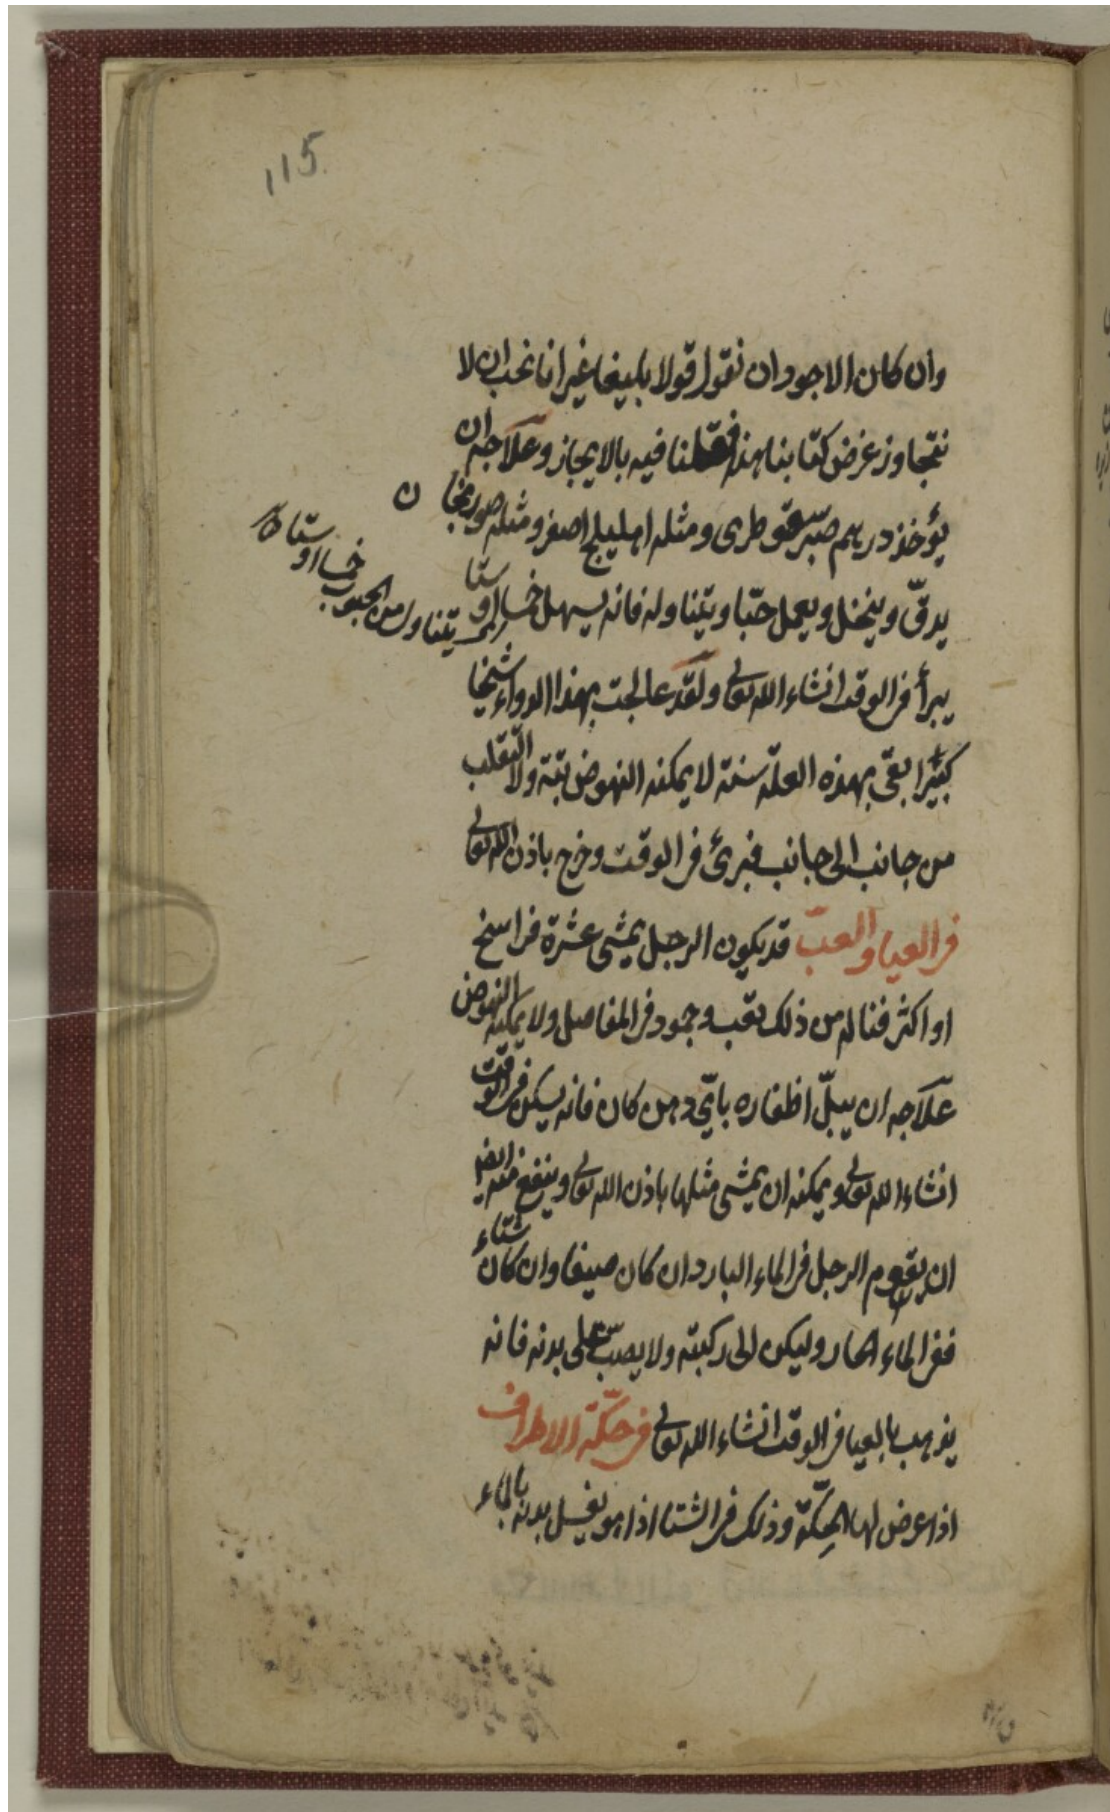 115
وان كان الاجود ان نقول قولا بليغا غير انا نحب ان لا
نتجاوز غرض كتابنا هذا فقلنا فيه بالايجاز وعلاجه ان
يؤخذ درهم صبر سقوطرى ومثله اهليلج اصفر ومثله صورنجان
يدقّ وينخل ويعمل حبّا ويتناوله فانه يسهل خمسا او ستا
يتناول من الحبوب خمسا او ستاه
يبرأ فى الوقت انشاء الله تعالى ولقد عالجت بهذا الدواء شيخا
كبيرا بقى بهذه العلّة سنة لا يمكنه النهوض بتة ولا التقلب
من جانب الى جانب فبرئ فى الوقت وخرج باذن الله تعالى
فى العيا والتعب قد يكون الرجل يمشى عشرة فراسخ
او اكثر فناله من ذلك تعب وجمود فى المفاصل ولا يمكنه النهوض
علاجه ان يبلّ اظفاره بايّ دهن كان فانه يسكن فى الوقت
انشاء الله تعالى ويمكنه ان يمشى مثلها باذن الله تعالى وينفع منه ايضا
ان يقوم الرجل فى الماء البارد ان كان صيفا وان كان شتاء
ففى الماء الحار وليكن الى ركبته ولا يصبّ على بدنه فانه
يذهب بالعيا فى الوقت انشاء الله تعالى فى حكّة الاطراف
اذا عرض لها الحكّة وذلك فى الشتا اذا هو يغسل بدنه بالماء